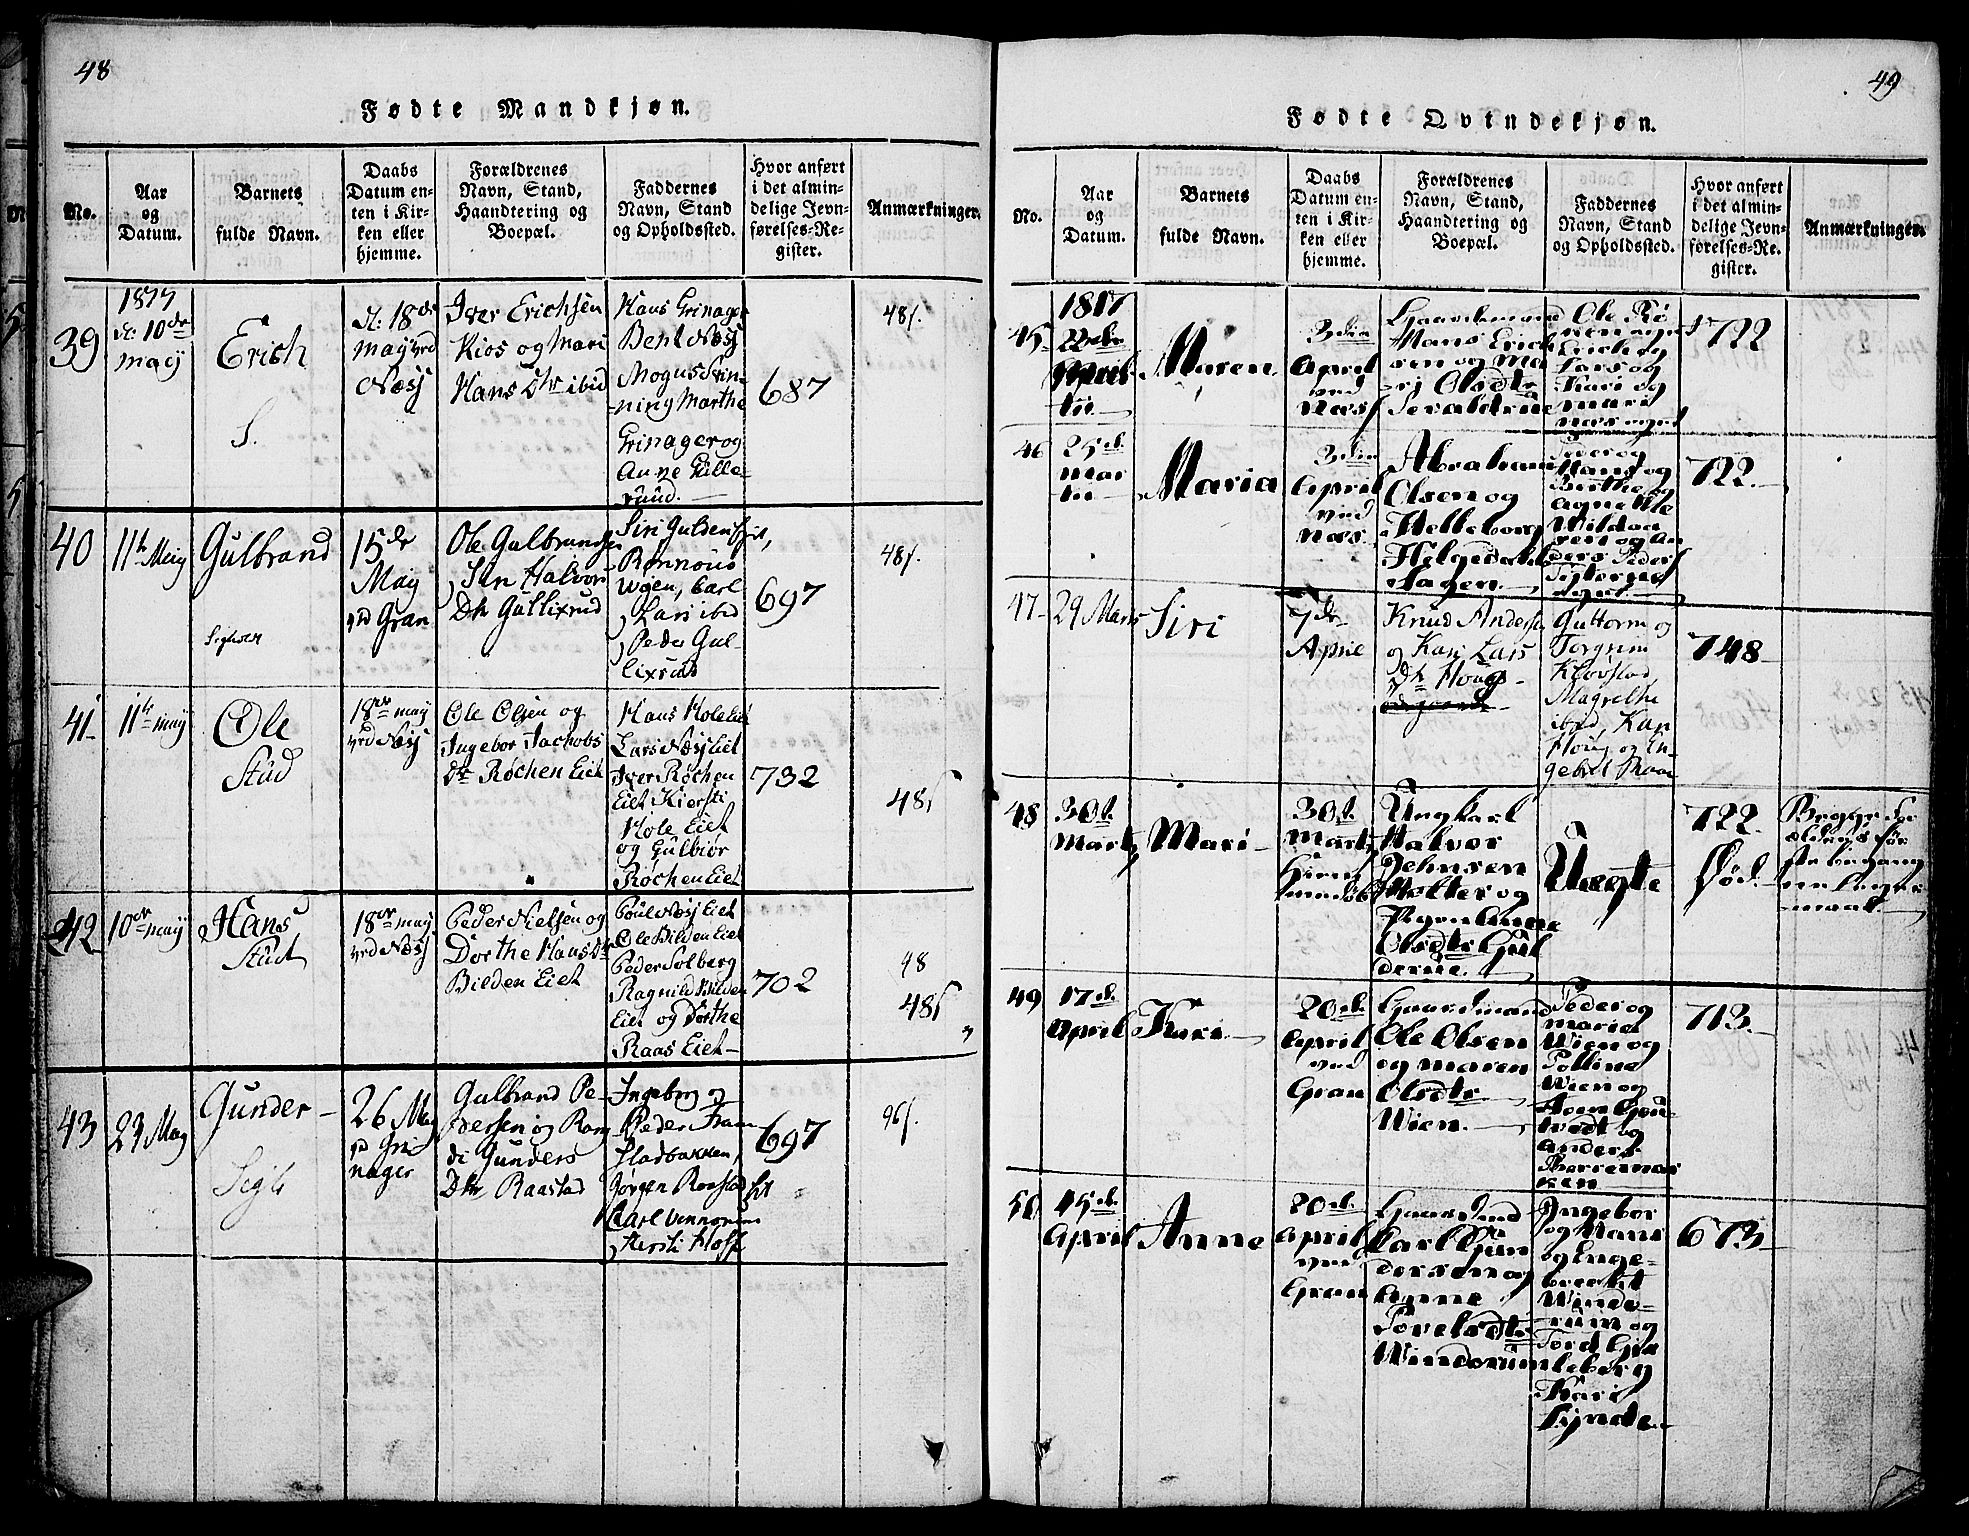 48
Fødte Mandkjøn.
No.
Aar
og
Datum.
Barnets
fulde Navn.
Daabs
Datum en-
ten i Kir-
ken eller
hjemme.
Forældrenes
Navn, Stand,
Haandtering og
Boepæl.
Faddernes
Navn, Stand
og Opholdssted.
Hvor anført
i det almin-
delige Jevn-
førelses-Re-
gister.
Anmærkninger.
39
1817
d: 10de
maij
Erich
S.
d: 18de
maij
Næsj
Iver Erichsen
Kios og Mari
Hans Dtr ibid
Hans Grinager
Bent Næsj
Mogus
-ning Marthe
Grinager og
Anne Gülle-
rüüd.
687
48s.
40
11te Maij
Gulbrand
15de
Maij
Gran
Ole Gulbrand
Halvor
Dtr Gullixrud
Siri
Rønnoug
Woen, Carl
Lars ibid
Peder Gul-
lixrud
697
48s.
41
11te maij
Ole
Stüd
18de maij
Næsj
Ole Olsen og
Ingebor Jachobs
Dtr Røchen Eiet
Hans Hole Eiet
Lars Næsj Eiet
Iver Røchen
Eiet Kiersti
Hole Eiet
og Gülbiør
Røchen Eiet
732
48s
42
10de maij
Hans
Stüd
18de maij
Næsj
Peder Nielsen og
Dorthe Hans Dtr
Bilden Eiet
Poül Næsj Eiet
Ole Bilden Eiet
Peder Solberg
Ragnild Bilden
Eiet og Dorthe
Raas Eiet
702
48
48s
43
23 Maij
Gunder
26 Maij
Gri
nager
Gulbrand Pe-
dersen og Ran
di Gunders
Dtr Raastad
Ingeborg og
Peder Fram
Stadbakken,
Jørgen Raastad
Carl
Kersti Hoff
697
96s.
49
Fødte Qvindekjøn.
No.
Aar
og
Datum.
Barnets
fulde Navn.
Daabs
Datum en-
ten i Kir-
ken eller
hjemme.
Forældrenes
Navn, Stand,
Haandtering og
Boepæl.
Faddernes
Navn, Stand
og Opholdssted.
Hvor anført
i det almin-
delige Jevn-
førelses-Re-
gister.
Anmærkninger.
45
1817
Maren
3die
April
ved
Næs
Gaardmand
Hans Erich
sen og Ma
ri Olsdtr
Ole
Erich og
Lars og
Kari og
Mari
722
46
25de
Mar
tii
Maria
3die
April
ved
Næs
Abraham
Olsen og
Helleborg
Helgesdatter
Hagen.
Iver og
Hans og
Berthe og
722.
47
29 Mars
Siri
7de
April
Knud Anders
og Kari Lars
Dtr Houg
Guttorm og
Torgrim
Kløvstad
Magrethe
ibid, Kari
Houg og En-
gebret
748
48
30te
Marts
Mari
30te
Marts
hiem
Ungkarl
Halvor
Johnsen
Holter og
Pigen Anne
Olsdtr
Uægte
722.
Død.
Begge For
ældres før
ste begang
ne Leyer-
maal.
49
17de
April
Kari
20de
April
ved
Gran
Gaardmand
Ole Olsen
og Maren
Olsdtr
Wien.
Peder og
Marie
Wien og
Polline
Wien og
og
Anders
713.
50
15de
April
Anne
20de
April
ved
Gran
Gaardmd
Karl Gun
dersen og
Anne
Povelsdtr
Windorum
Ingebor
og Mari
og Enge-
breckt
Windo-
rum og
Tord Gis
leberg
Kari
Lynde.
673